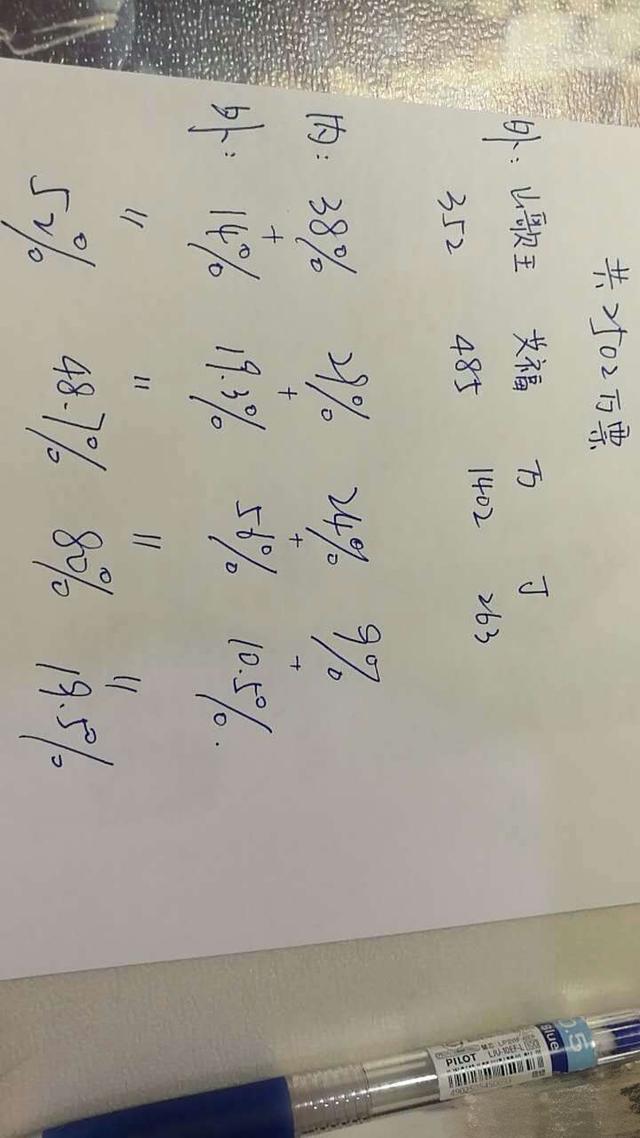 共2502万票
外: 山歌王 艾福 万 丁
352 485 1402 263
内: 38% 29% 24% 9%
+ + + +
外: 14% 19.3% 56% 10.5%.
= = = =
52% 48.7% 80% 19.5%
0.5
Blue
PILOT LIU-10EF-L